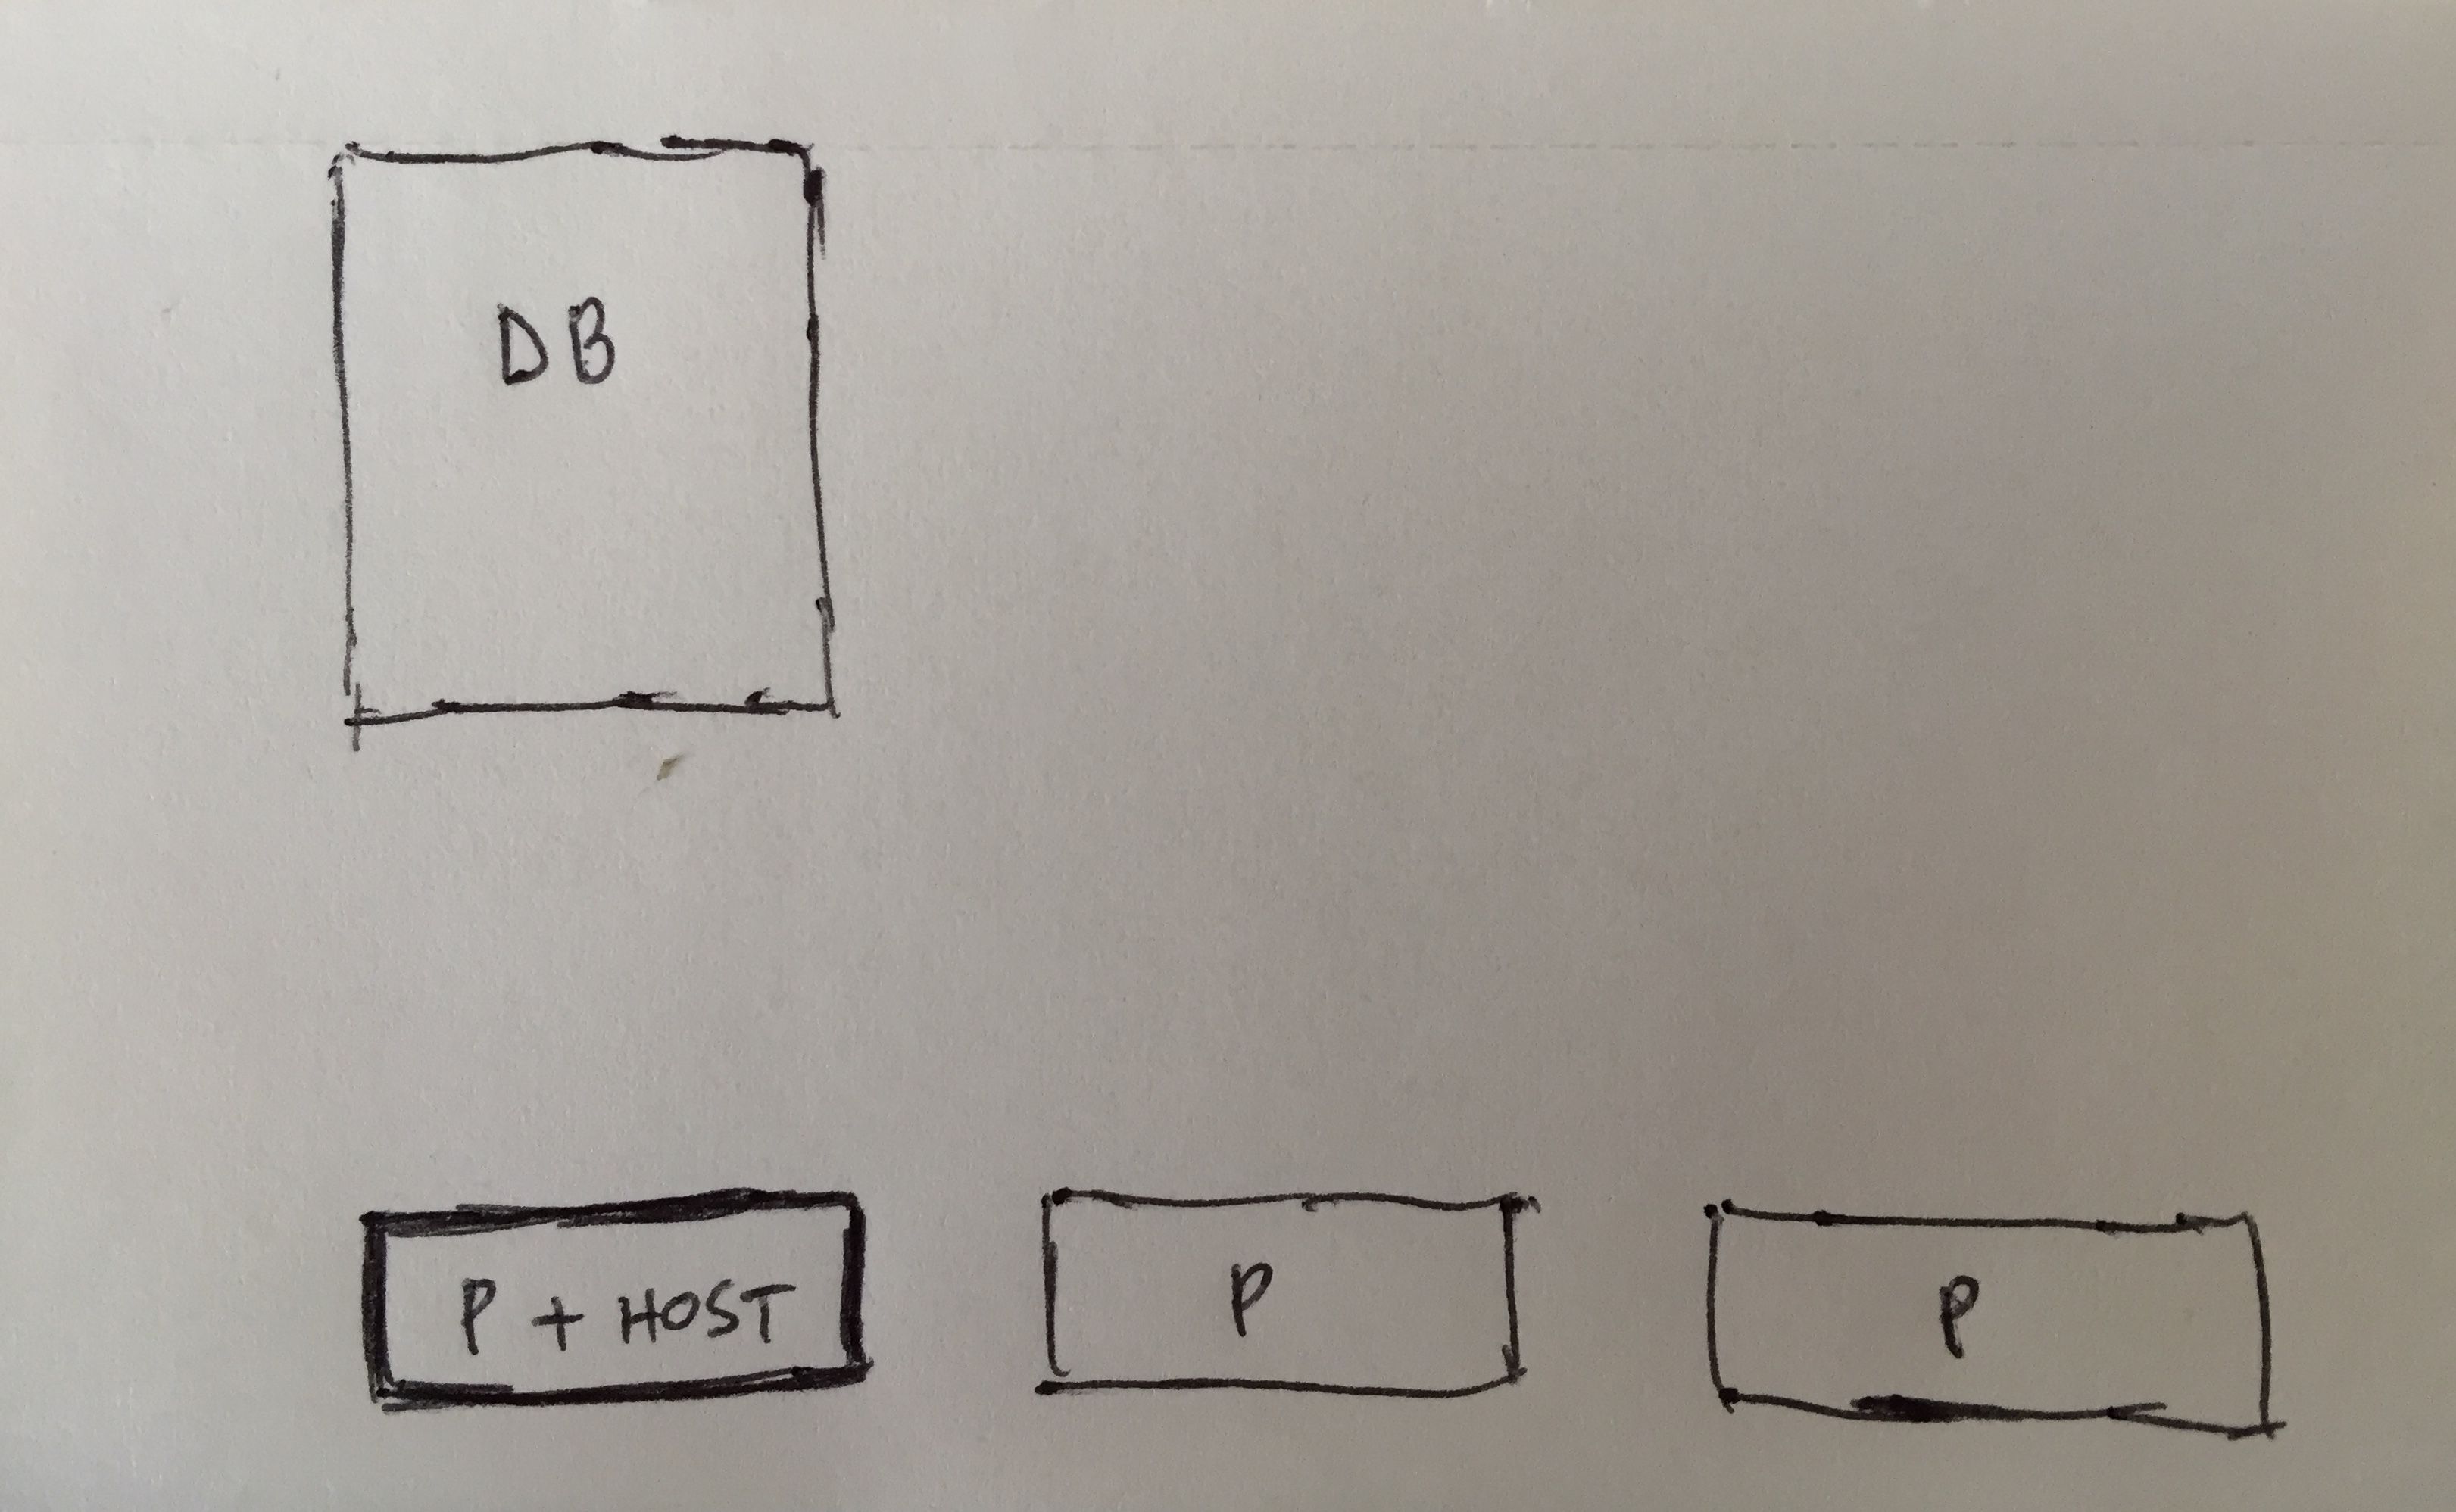 DB
P + HOST
P
P